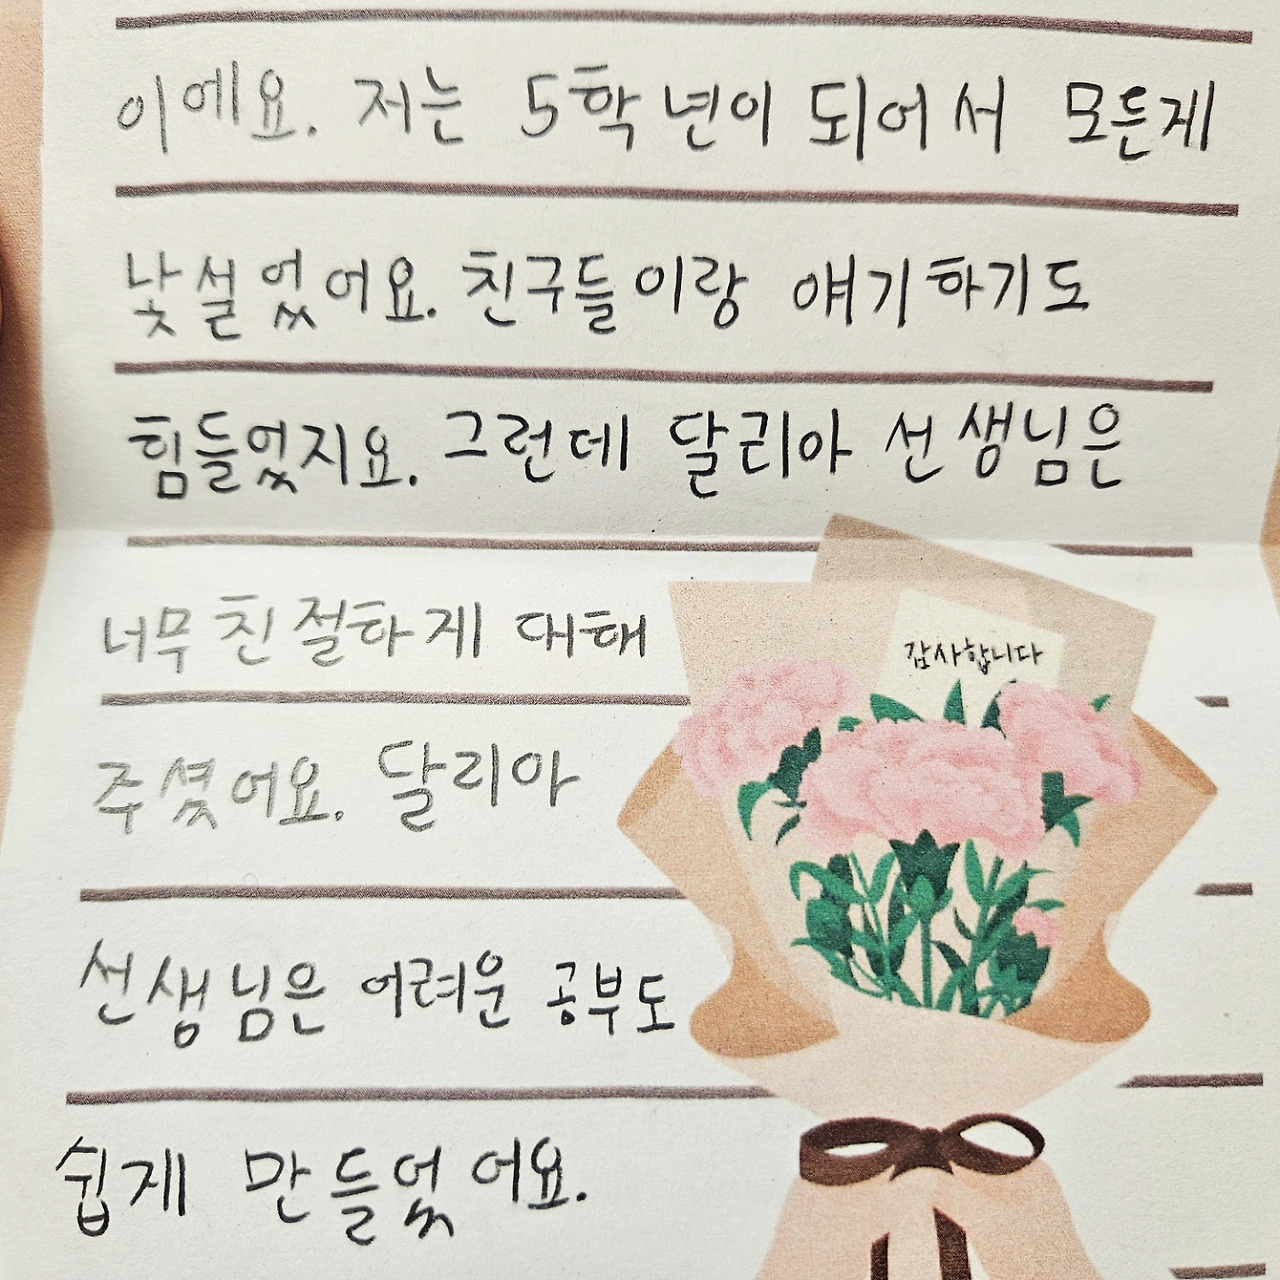 이에요. 저는 5학년이 되어서 모든게
낯설었어요. 친구들이랑 얘기하기도
힘들었지요. 그런데 달리아 선생님은
너무 친절하게 대해
감사합니다
주셨어요. 달리아
선생님은 어려운 공부도
쉽게 만들었어요.